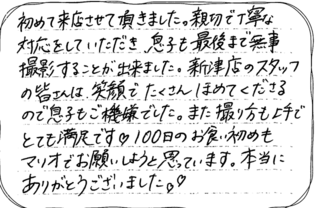 初めて来店させて頂きました。親切で丁寧な
対応をしていただき、息子も最後まで無事
撮影することが出来ました。新津店のスタッフ
の皆さんは、笑顔でたくさんほめてくださる
ので息子もご機嫌でした。また撮り方も上手で
とても満足です♡100日のお食い初めも
マリオでお願いしようと思っています。本当に
ありがとうございました。♡